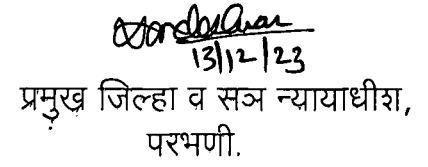 13/12/23
प्रमुख जिल्हा व सत्र न्यायाधीश,
परभणी.